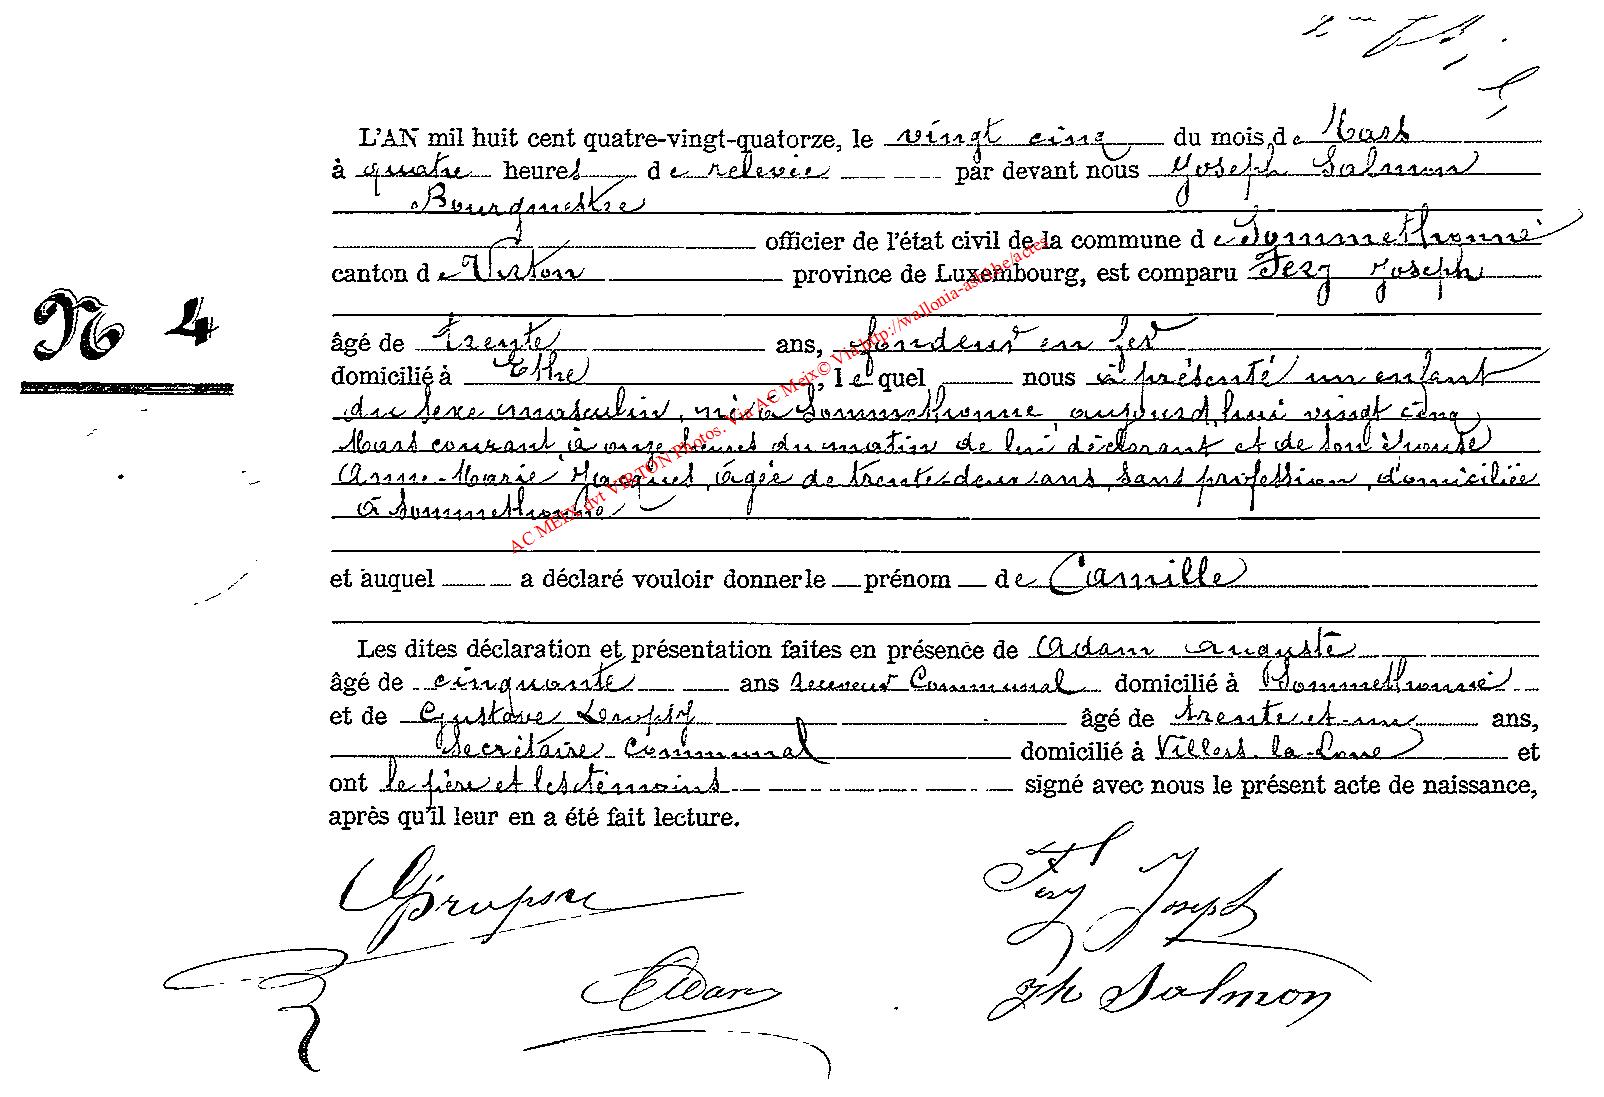 L'AN mil huit cent quatre-vingt-quatorze, le vingt cinq du mois de Mars
à quatre heures de relevée par devant nous Joseph Salmon
Bourgmestre
officier de l'état civil de la commune de Sommethonne
canton de Virton province de Luxembourg, est comparu Fery Joseph
N 4
âgé de trente ans, fondeur en fer
domicilié à Ethe, lequel nous a présenté un enfant
du sexe masculin, né à Sommethonne, aujourd'hui vingt cinq
Mars courant à onze heures du matin de lui déclarant et de son épouse
Anne-Marie Jacques, âgée de trente-deux ans, sans profession, domiciliée
à Sommethonne
et auquel a déclaré vouloir donner le prénom de Camille
Les dites déclaration et présentation faites en présence de Adam Auguste
âgé de cinquante ans receveur Communal domicilié à Sommethonne
et de Gustave âgé de trente et un ans,
Secrétaire Communal domicilié à Villers-la-Loue et
ont le père et les témoins signé avec nous le présent acte de naissance,
après qu'il leur en a été fait lecture.
Fery Joseph
Adam
Jh Salmon
AC MEIX dvt VIRTON Photos. Via AC Meix© Via http://wallonia-asbl.be/actes